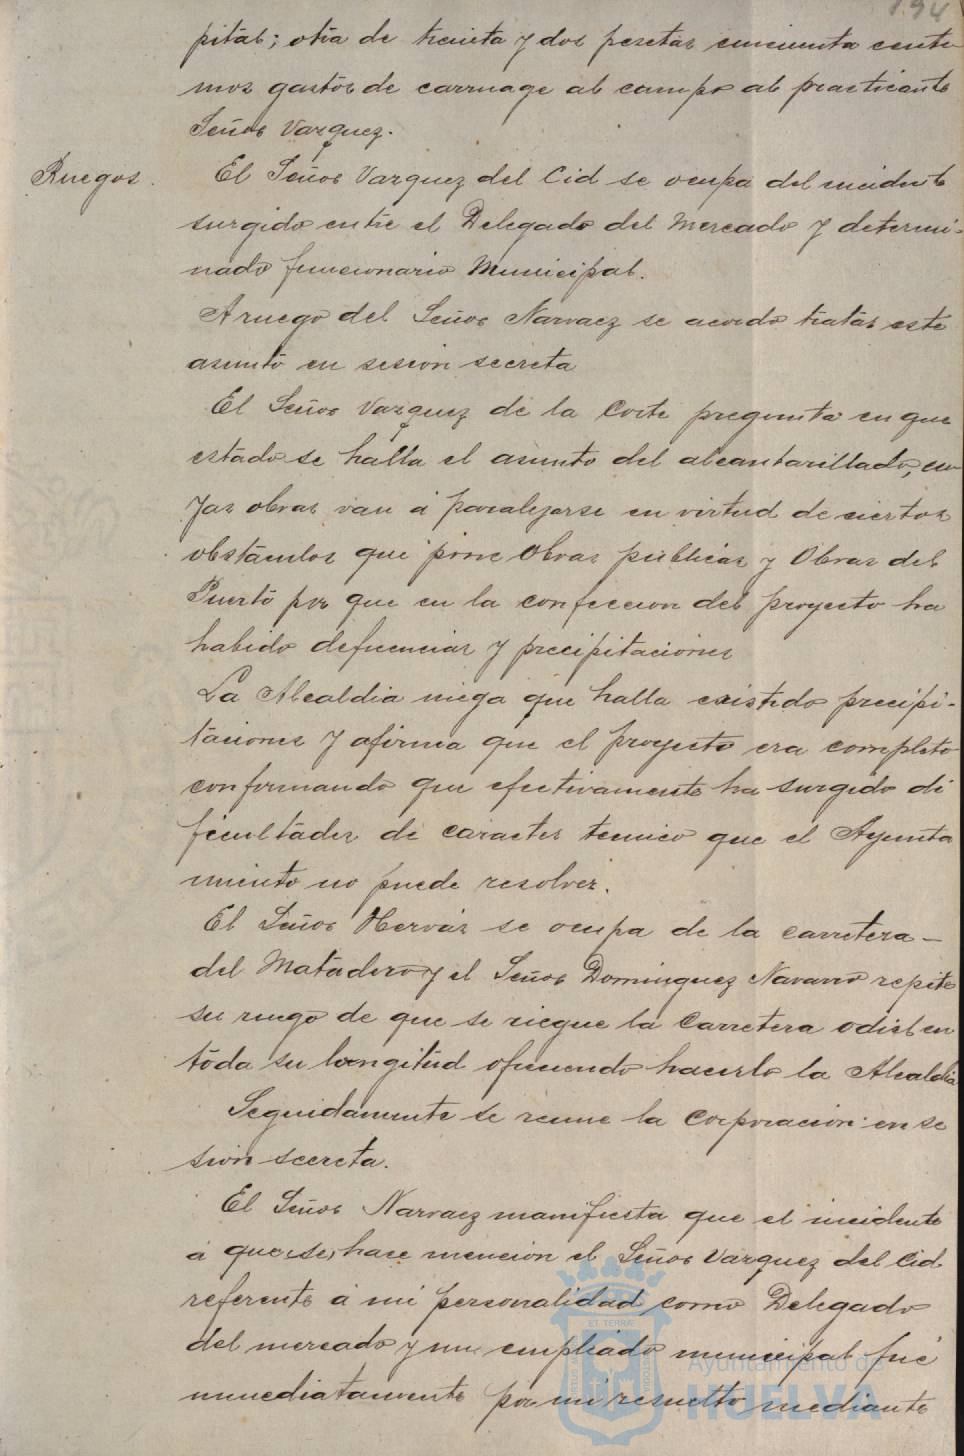 194
pitas; otra de treinta y dos pesetas cincuenta centi
mos gastos de carruage al campo al practicante
Señor Vazquez.
Ruegos. El Señor Vazquez del Cid se ocupa del incidente
surgido entre el Delegado del Mercado y determi-
nado funcionario Municipal.
A ruego del Señor Narvaez se acordo tratar este
asunto en sesion secreta
El Señor Vazquez de la Corte pregunta en que
estado se halla el asunto del alcantarillado, cu
yas obras van á paralizarse en virtud de ciertos
obstáculos que pone Obras públicas y Obras del
Puerto por que en la confeccion del proyecto ha
habido deficiencias y precipitaciones
La Alcaldia niega que halla existido precipi-
taciones y afirma que el proyecto era completo
conformando que efectivamente ha surgido di
ficultades de caracter tecnico que el Ayunta
miento no puede resolver.
El Señor Hervás se ocupa de la carretera-
del Matadero y el Señor Dominguez Navarro repite
su ruego de que se riegue la Carretera odiel en
toda su longitud ofreciendo hacerlo la Alcaldia
Seguidamente se reune la Corporacion en se
sion secreta.
El Señor Narvaez manifiesta que el incidente
a que se hace mencion el Señor Vazquez del Cid
referente á mi personalidad como Delegado
del mercado y un empleado municipal fué
inmediatamente por mi resuelto mediante
ET TERRÆ
Ayuntamiento de
HUELVA